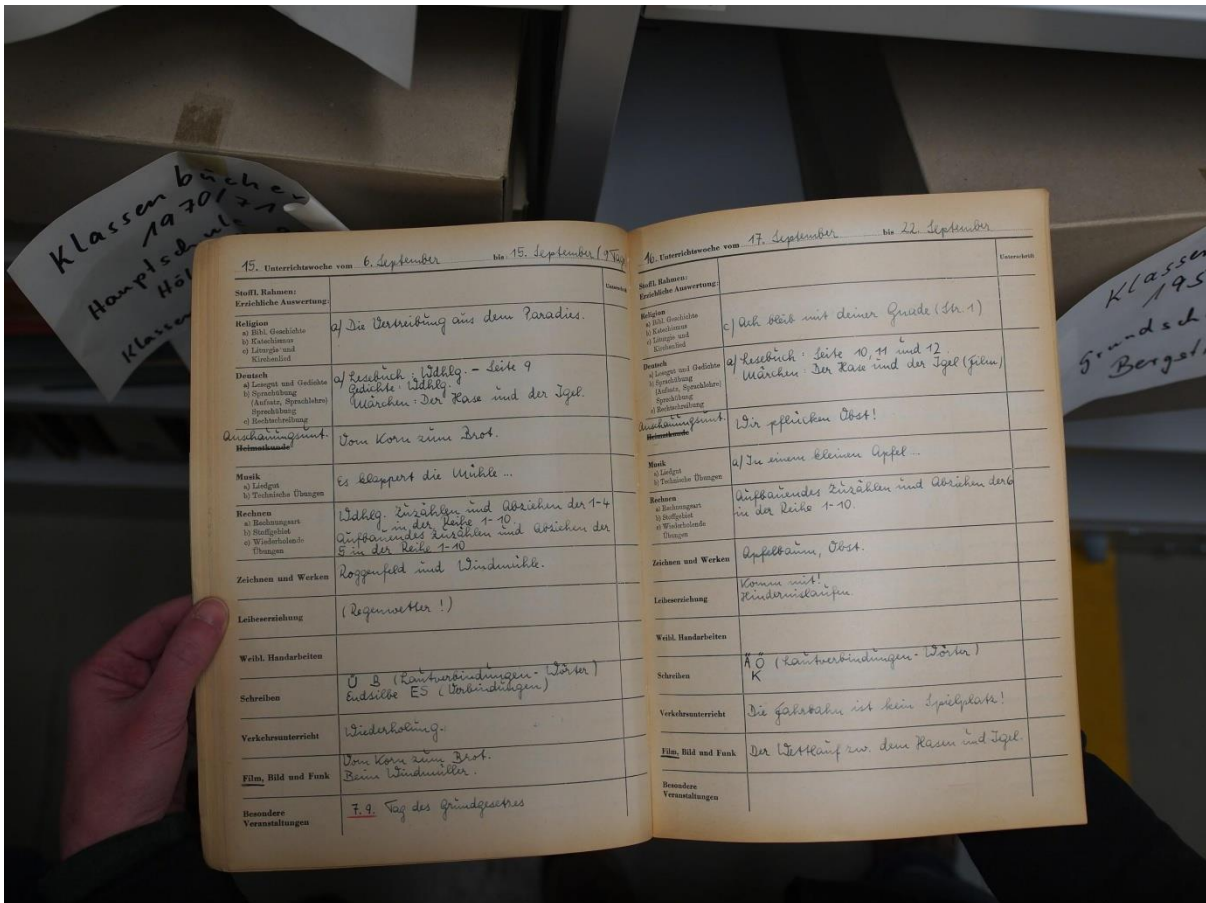 Klassenbücher
1970/71
Hauptschule
Klassen
15. Unterrichtswoche vom 6. September bis 15. September (9 Tage
Stoffl. Rahmen:
Erziehliche Auswertung:
Religion
a) Bibl. Geschichte
b) Katechismus
c) Liturgie und
Kirchenlied
a) Die Vertreibung aus dem Paradies.
Deutsch
a) Lesegut und Gedichte
b) Sprachübung
(Aufsatz, Sprachlehre)
Sprachübung
c) Rechtschreibung
a) Lesebuch: Wdhlg. - Seite 9
Gedichte: Wdhlg.
Märchen: Der Hase und der Igel.
Anschauungsunt.
Heimatkunde
Vom Korn zum Brot.
Musik
a) Liedgut
b) Technische Übungen
Es klappert die Mühle ...
Rechnen
a) Rechnungsart
b) Stoffgebiet
c) Wiederholende
Übungen
Wdhlg. Zuzählen und Abziehen der 1-4
in der Reihe 1-10.
Aufbauendes Zuzählen und Abziehen der
5 in der Reihe 1-10
Zeichnen und Werken
Roggenfeld und Windmühle.
Leibeserziehung
(Regenwetter!)
Weibl. Handarbeiten
Schreiben
Ü B (Lautverbindungen - Wörter)
Endsilbe ES (Verbindungen)
Verkehrsunterricht
Wiederholung.
Film, Bild und Funk
Vom Korn zum Brot.
Beim Windmüller.
Besondere
Veranstaltungen
7. 9. Tag des Grundgesetzes
16. Unterrichtswoche vom 17. September bis 22. September
Stoffl. Rahmen:
Erziehliche Auswertung:
Unterschrift
Religion
a) Bibl. Geschichte
b) Katechismus
c) Liturgie und
Kirchenlied
c) Ach bleib mit deiner Gnade (Str. 1)
Deutsch
a) Lesegut und Gedichte
b) Sprachübung
(Aufsatz, Sprachlehre)
Sprachübung
c) Rechtschreibung
a) Lesebuch: Seite 10, 11 und 12
Märchen: Der Hase und der Igel (Film)
Anschauungsunt.
Heimatkunde
Wir pflücken Obst!
Musik
a) Liedgut
b) Technische Übungen
a) In einem kleinen Apfel ...
Rechnen
a) Rechnungsart
b) Stoffgebiet
c) Wiederholende
Übungen
Aufbauendes Zuzählen und Abziehen der 6
in der Reihe 1-10.
Zeichnen und Werken
Apfelbaum, Obst.
Leibeserziehung
Komm mit!
Hindernislaufen
Weibl. Handarbeiten
Schreiben
Ä Ö (Lautverbindungen - Wörter)
K
Verkehrsunterricht
Die Fahrbahn ist kein Spielplatz!
Film, Bild und Funk
Der Wettlauf zw. dem Hasen und Igel.
Besondere
Veranstaltungen
Klassen
195
Grundsch